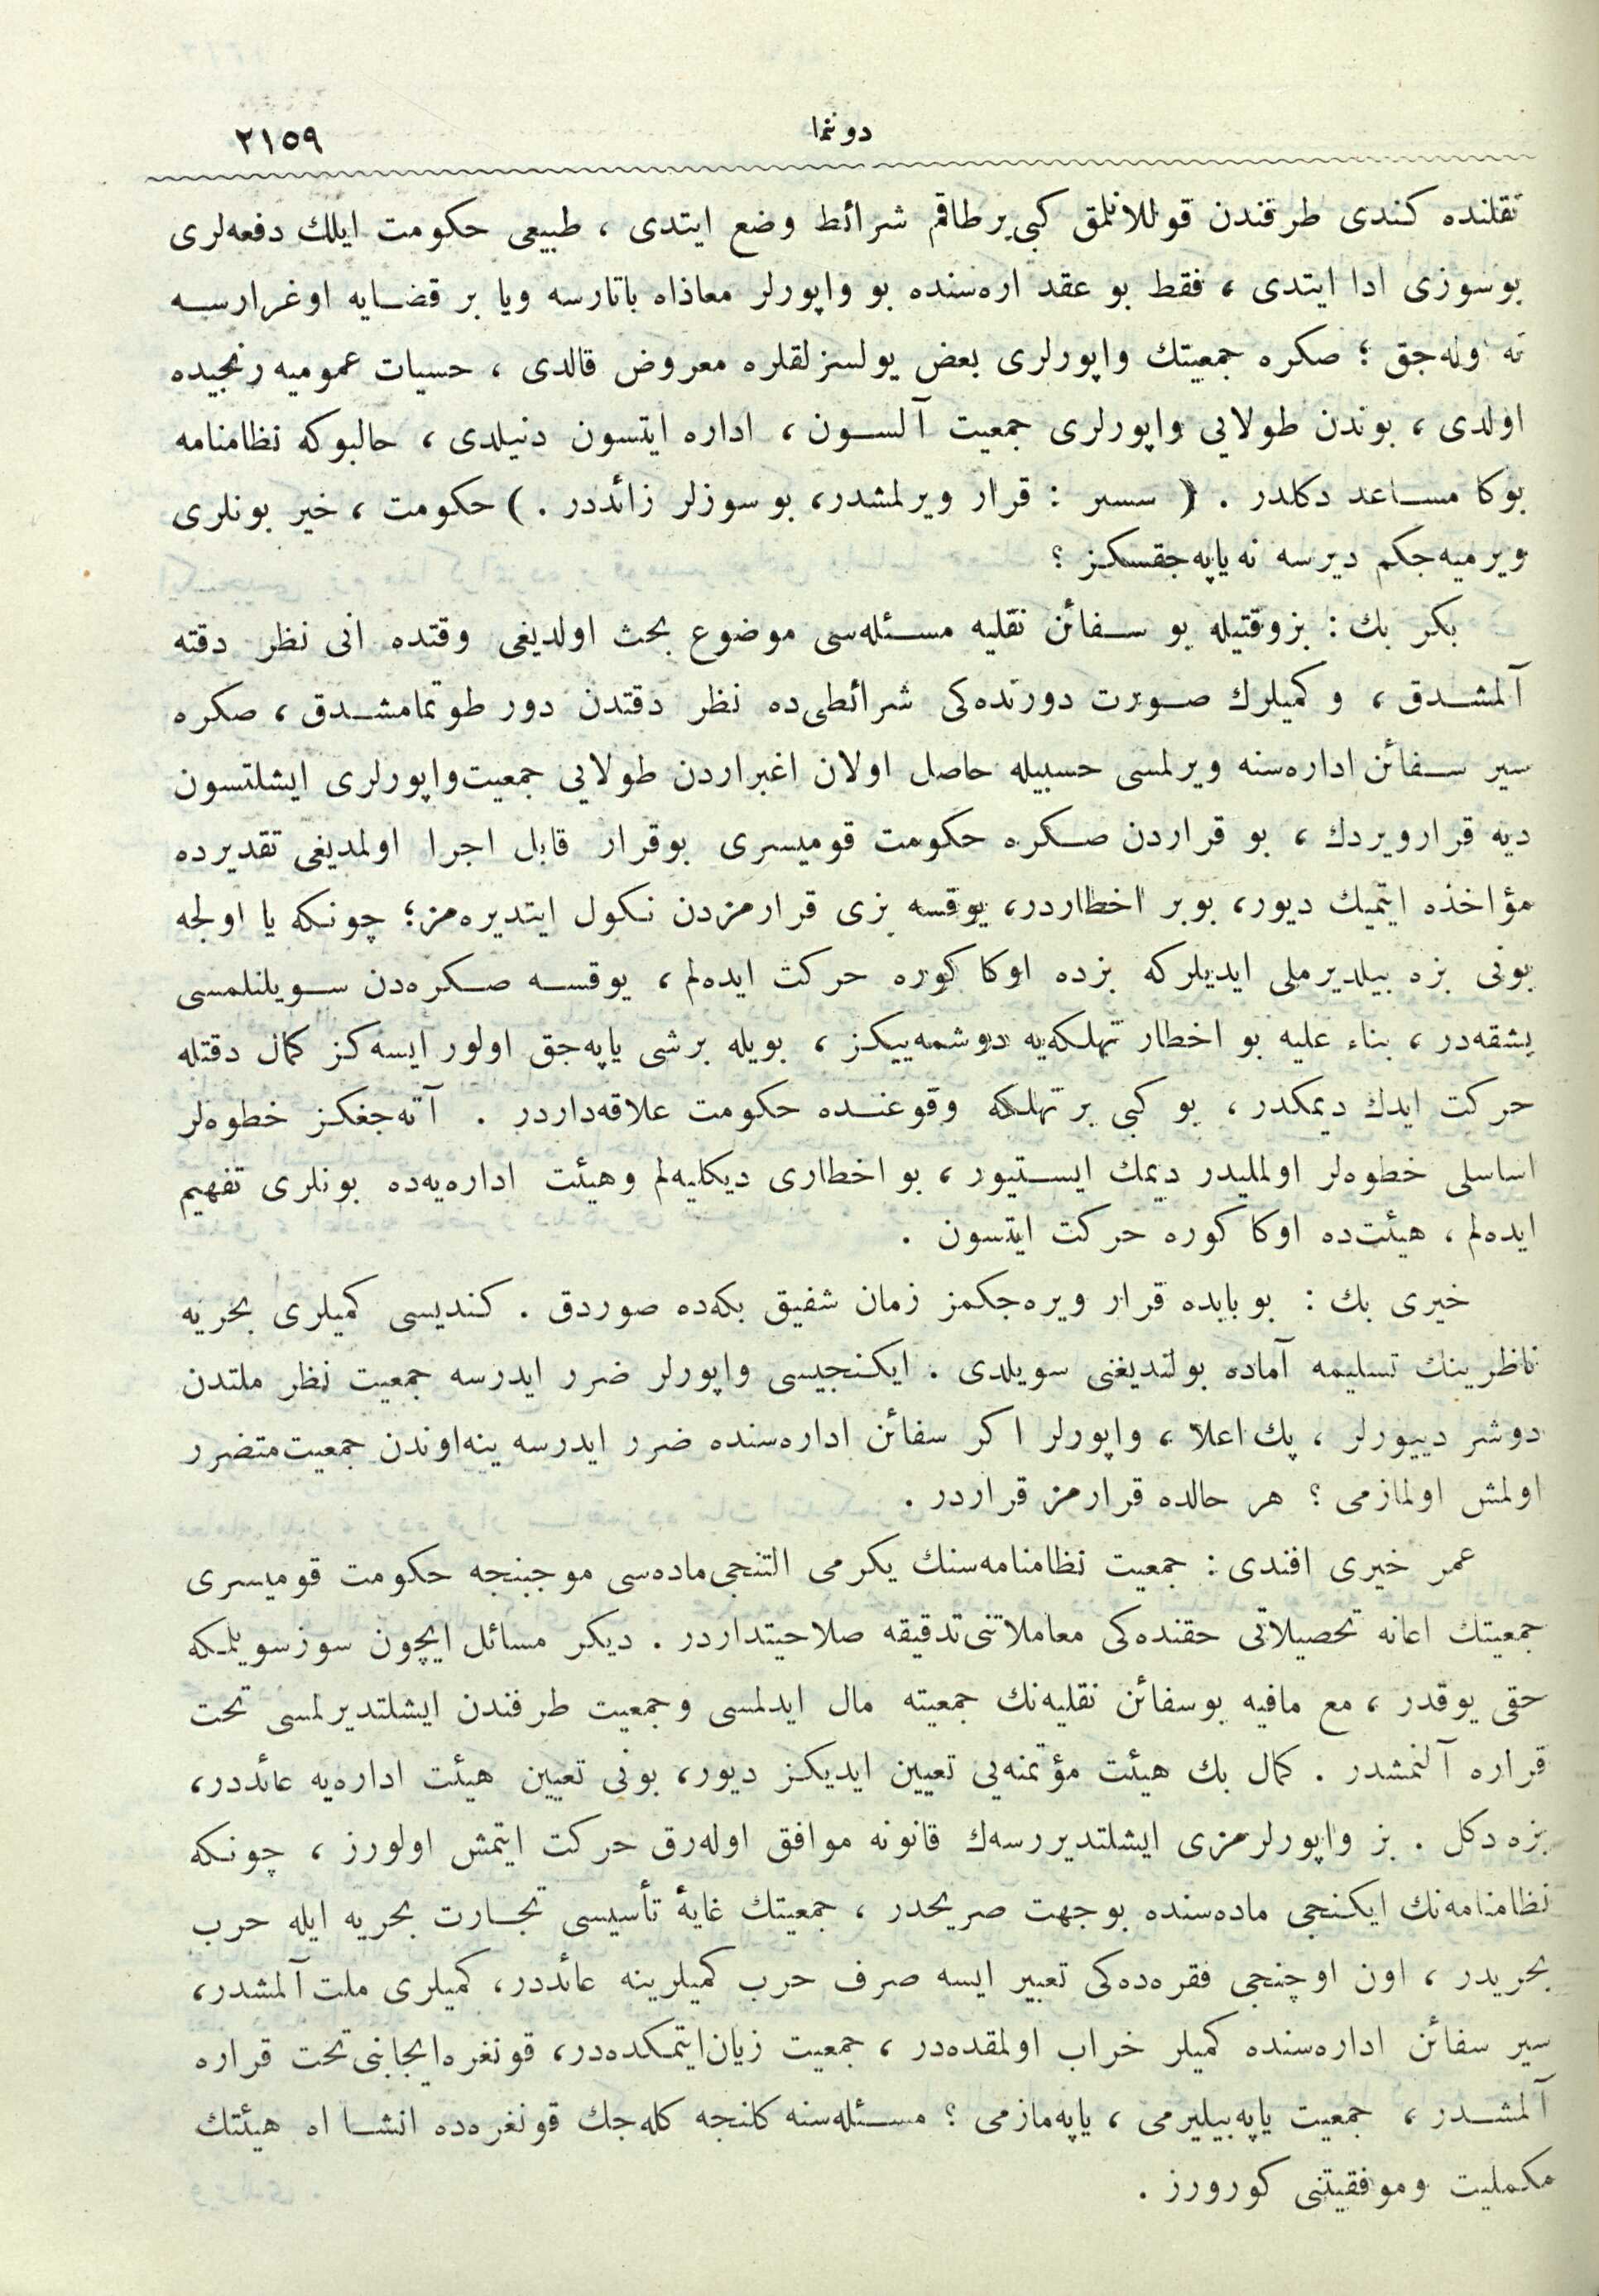 دوننما ٢١٥٩
نقلنده كندی طرفندن قوللانلمق كبی برطاقم شرائط وضع ایتدی ، طبیعی حكومت ایلك دفعه‌لری
بوسوزی ادا ایتدی ، فقط بو عقد اره‌سنده بو واپورلر معاذاه باتارسه ویا بر قضایه اوغرارسه
نه اوله‌جق ؛ صكره جمعیتك واپورلری بعض یولسزلقلره معروض قالدی ، حسیات عمومیه رنجیده
اولدی ، بوندن طولایی واپورلری جمعیت آلسون ، اداره ایتسون دنیلدی ، حالبوكه نظامنامه
بوكا مساعد دكلدر . ( سسلر : قرار ویرلمشدر، بو سوزلر زائددر . ) حكومت ، خیر بونلری
ویرمیه‌جكم دیرسه نه یاپه‌جقسكز ؟
بكر بك : بزوقتیله بو سفائن نقلیه مسئله‌سی موضوع بحث اولدیغی وقتده انی نظر دقته
آلمشدق ، و كمیلرك صورت دورنده‌كی شرائطی‌ده نظر دقتدن دور طوتمامشدق ، صكره
سیر سفائن اداره‌سنه ویرلمسی حسبیله حاصل اولان اغبراردن طولایی جمعیت واپورلری ایشلتسون
دیه قرارویردك ، بو قراردن صكره حكومت قومیسری بوقرار قابل اجرا اولمدیغی تقدیرده
مؤاخذه ایتمیك دیور، بوبر اخطاردر، یوقسه بزی قرارمزدن نكول ایتدیره‌مز؛ چونكه یا اولجه
بونی بزه بیلدیرملی ایدیلركه بزده اوكا كوره حركت ایده‌لم ، یوقسه صكره‌دن سویلنلمسی
بشقه‌در ، بناء علیه بو اخطار تهلكه‌یه دوشمه‌ییكز ، بویله برشی یاپه‌جق اولور ایسه‌كز كمال دقتله
حركت ایدك دیمكدر ، بو كبی بر تهلكه وقوعنده حكومت علاقه‌داردر . آته‌جغكز خطوه‌لر
اساسلی خطوه‌لر اولملیدر دیمك ایستیور ، بو اخطاری دیكلیه‌لم وهیئت اداره‌یه‌ده بونلری تفهیم
ایده‌لم ، هیئت‌ده اوكا كوره حركت ایتسون .
خیری بك : بو بابده قرار ویره‌جكمز زمان شفیق بكه‌ده صوردق . كندیسی كمیلری بحریه
ناظرینك تسلیمه آماده بولندیغنی سویلدی . ایكنجیسی واپورلر ضرر ایدرسه جمعیت نظر ملتدن
دوشر دییورلر ، پك اعلا ، واپورلر اكر سفائن اداره‌سنده ضرر ایدرسه ینه‌اوندن جمعیت متضرر
اولمش اولمازمی ؟ هر حالده قرارمز قراردر .
عمر خیری افندی : جمعیت نظامنامه‌سنك یكرمی التنجی ماده‌سی موجبنجه حكومت قومیسری
جمعیتك اعانه تحصیلاتی حقنده‌كی معاملاتنی تدقیقه صلاحیتداردر . دیكر مسائل ایچون سوزسویلمكه
حقی یوقدر ، مع مافیه بوسفائن نقلیه‌نك جمعیته مال ایدلمسی وجمعیت طرفندن ایشلتدیرلمسی تحت
قراره آلنمشدر . كمال بك هیئت مؤتمنه‌یی تعیین ایدیكز دیور، بونی تعیین هیئت اداره‌یه عائددر،
بزه دكل . بز واپورلرمزی ایشلتدیررسه‌ك قانونه موافق اوله‌رق حركت ایتمش اولورز ، چونكه
نظامنامه‌نك ایكنجی ماده‌سنده بوجهت صریحدر ، جمعیتك غایۀ تأسیسی تجارت بحریه ایله حرب
بحریدر ، اون اوچنجی فقره‌ده‌كی تعبیر ایسه صرف حرب كمیلرینه عائددر، كمیلری ملت آلمشدر،
سیر سفائن اداره‌سنده كمیلر خراب اولمقده‌در ، جمعیت زیان‌ایتمكده‌در، قونغره ایجابنی تحت قراره
آلمشدر ، جمعیت یاپه‌بیلیرمی ، یاپه‌مازمی ؟ مسئله‌سنه كلنجه كله‌جك قونغره‌ده انشا اه هیئتك
مكملیت وموفقیتنی كورورز .